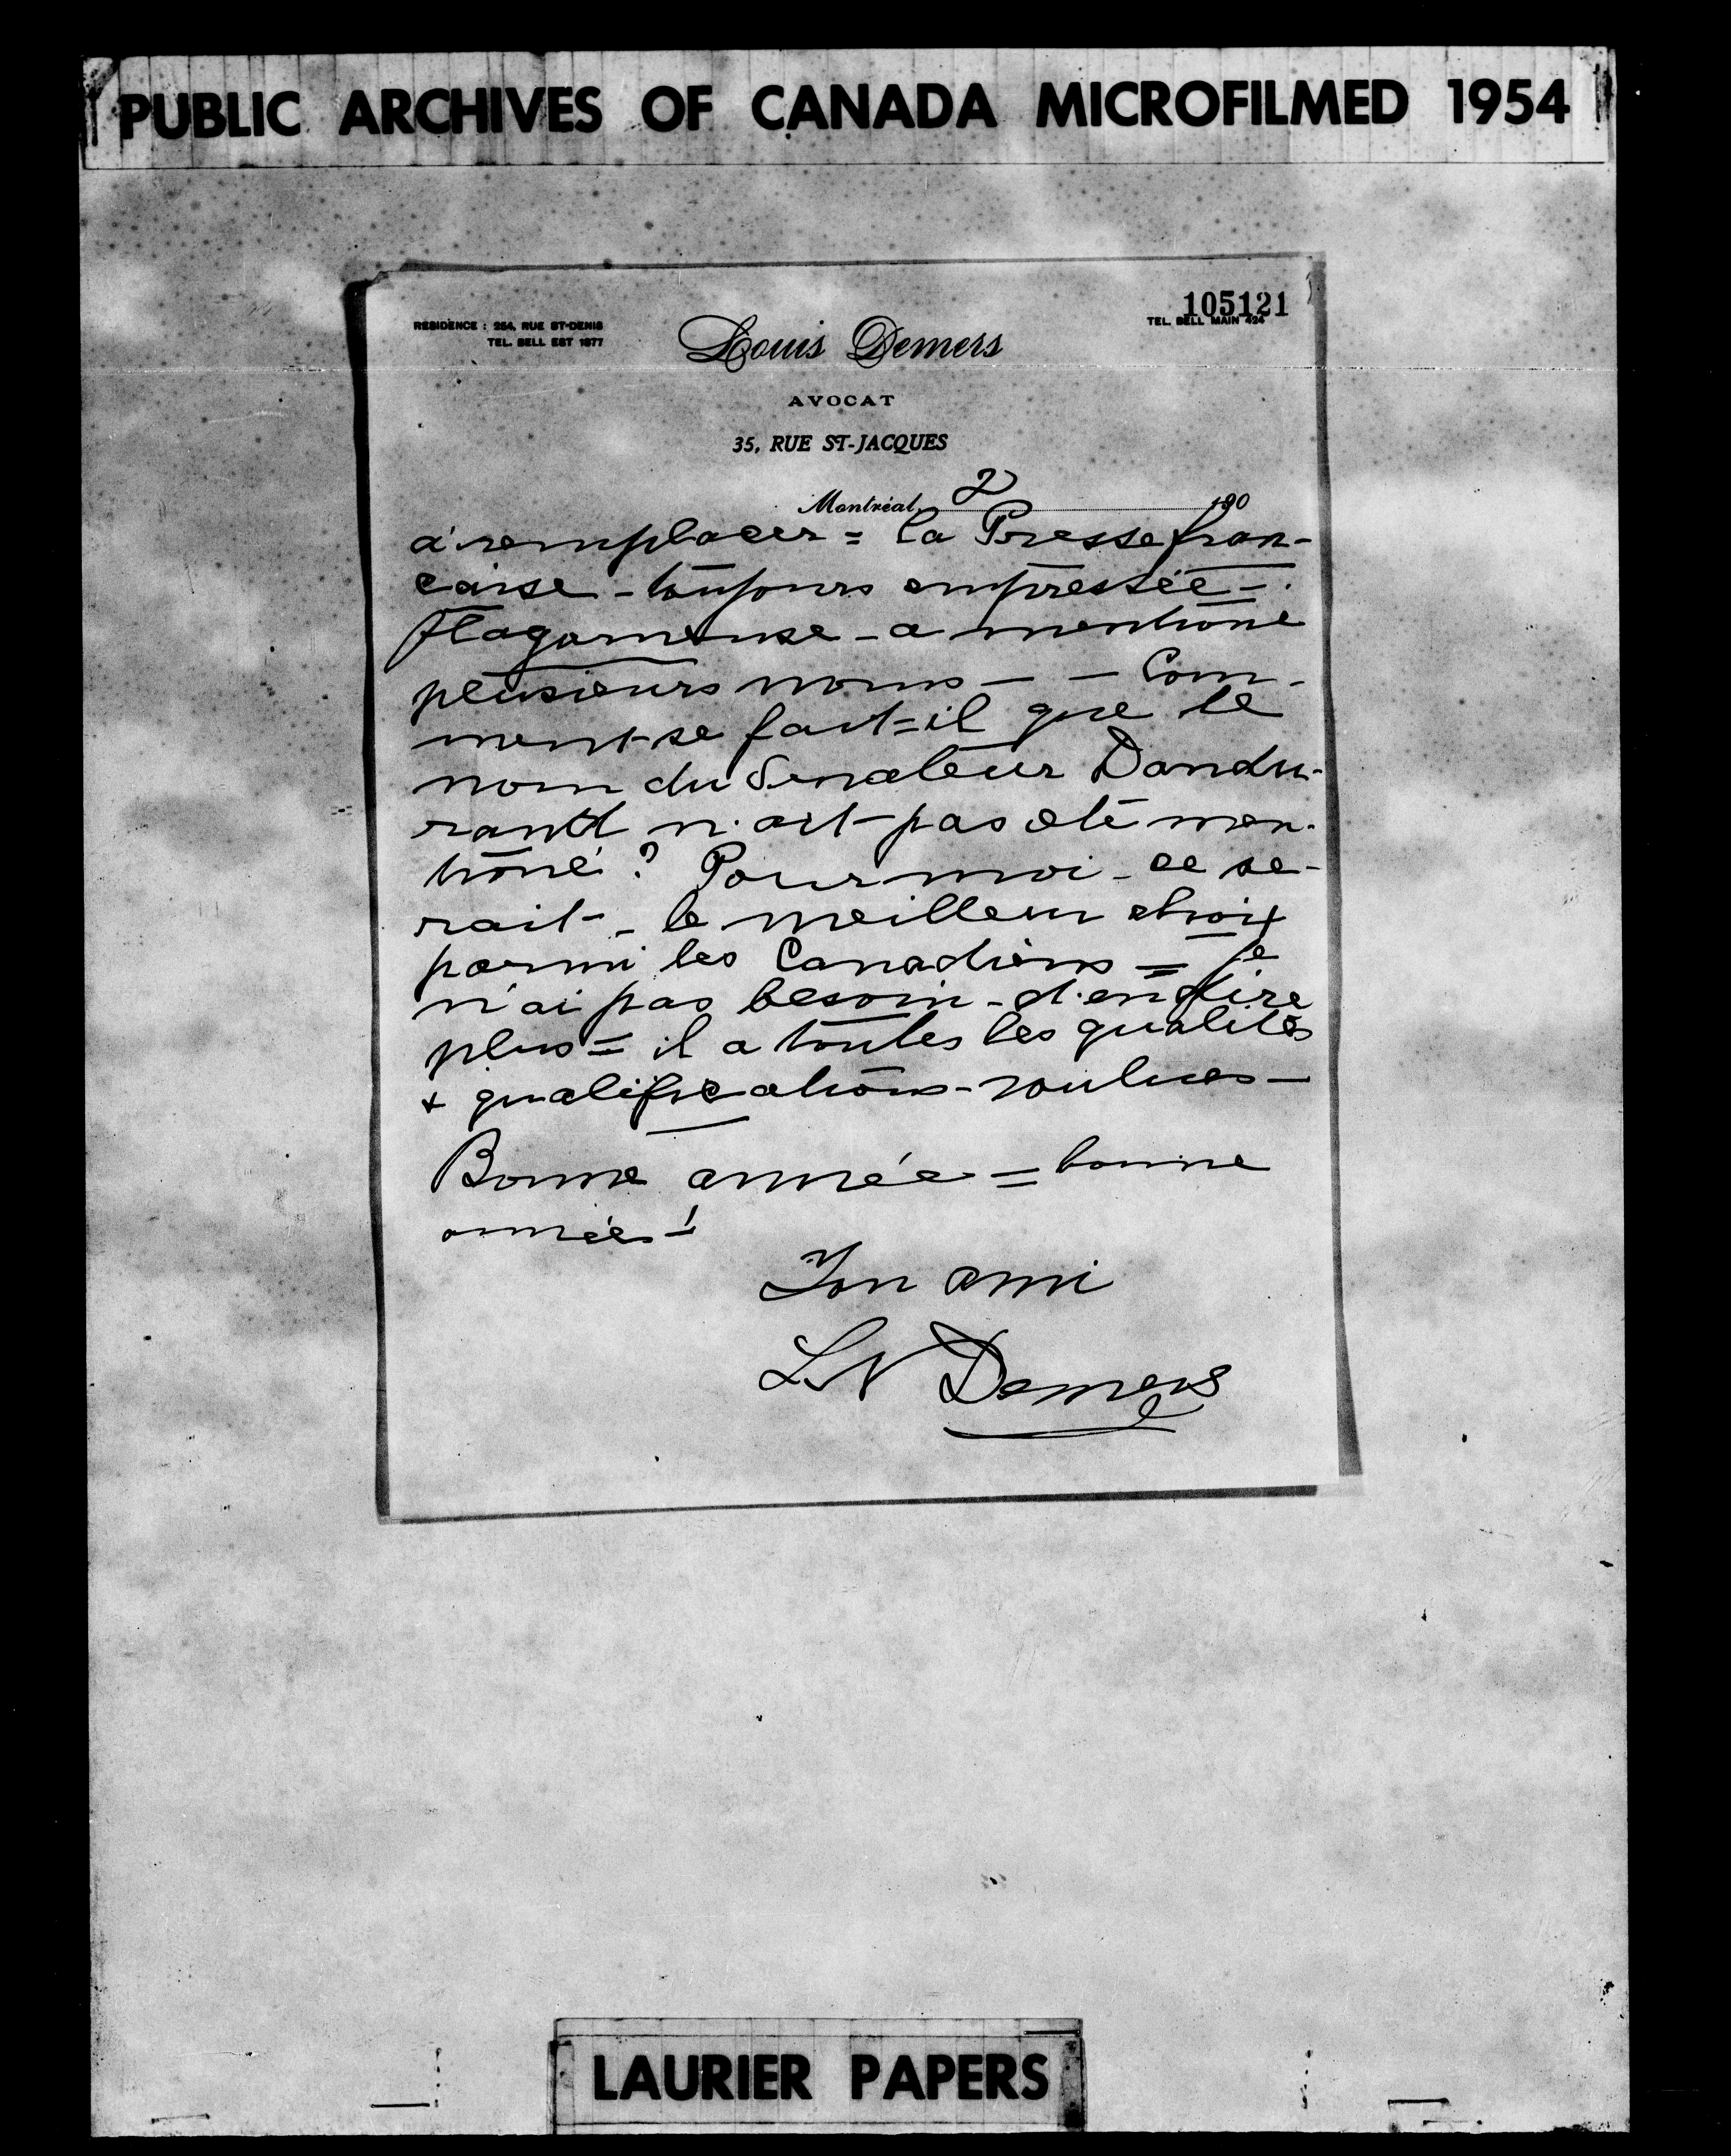 PUBLIC ARCHIVES OF CANADA MICROFILMED 1954
105121
RESIDENCE : 254, RUE ST-DENIS
TEL. BELL EST 1877
TEL. BELL MAIN 424
Louis Demers
AVOCAT
35, RUE ST-JACQUES
Montréal, 2 190
à remplacer = la Presse fran-
caise - toujours empressée -
flagorneuse - a mentioné
plusieurs noms - - Com-
ment se fait=il que le
nom du Senateur Dandu-
rand n'ait pas été men-
tioné ? Pour moi - ce se-
rait - le meilleur choix
parmi les Canadiens = je
n'ai pas besoin - d'en dire
plus = il a toutes les qualités
& qualifications - voulues -
Bonne année = bonne
année !
Ton ami
LN Demers
LAURIER PAPERS